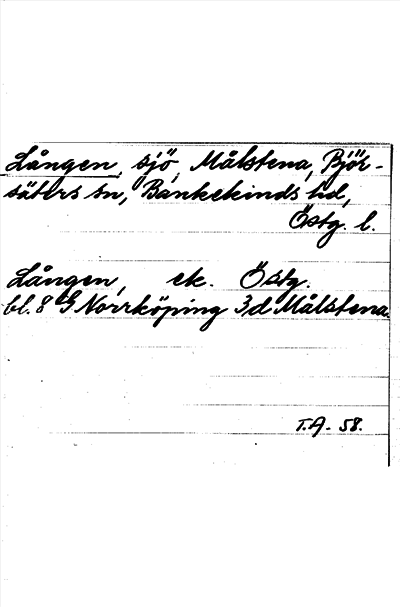 Lången, sjö, Målstena, Björ-
säters sn, Bankekinds hd,
Östg. l.
Lången, ek. Östg.
bl. 8 G Norrköping 3d Målstena.
T.A. 58.